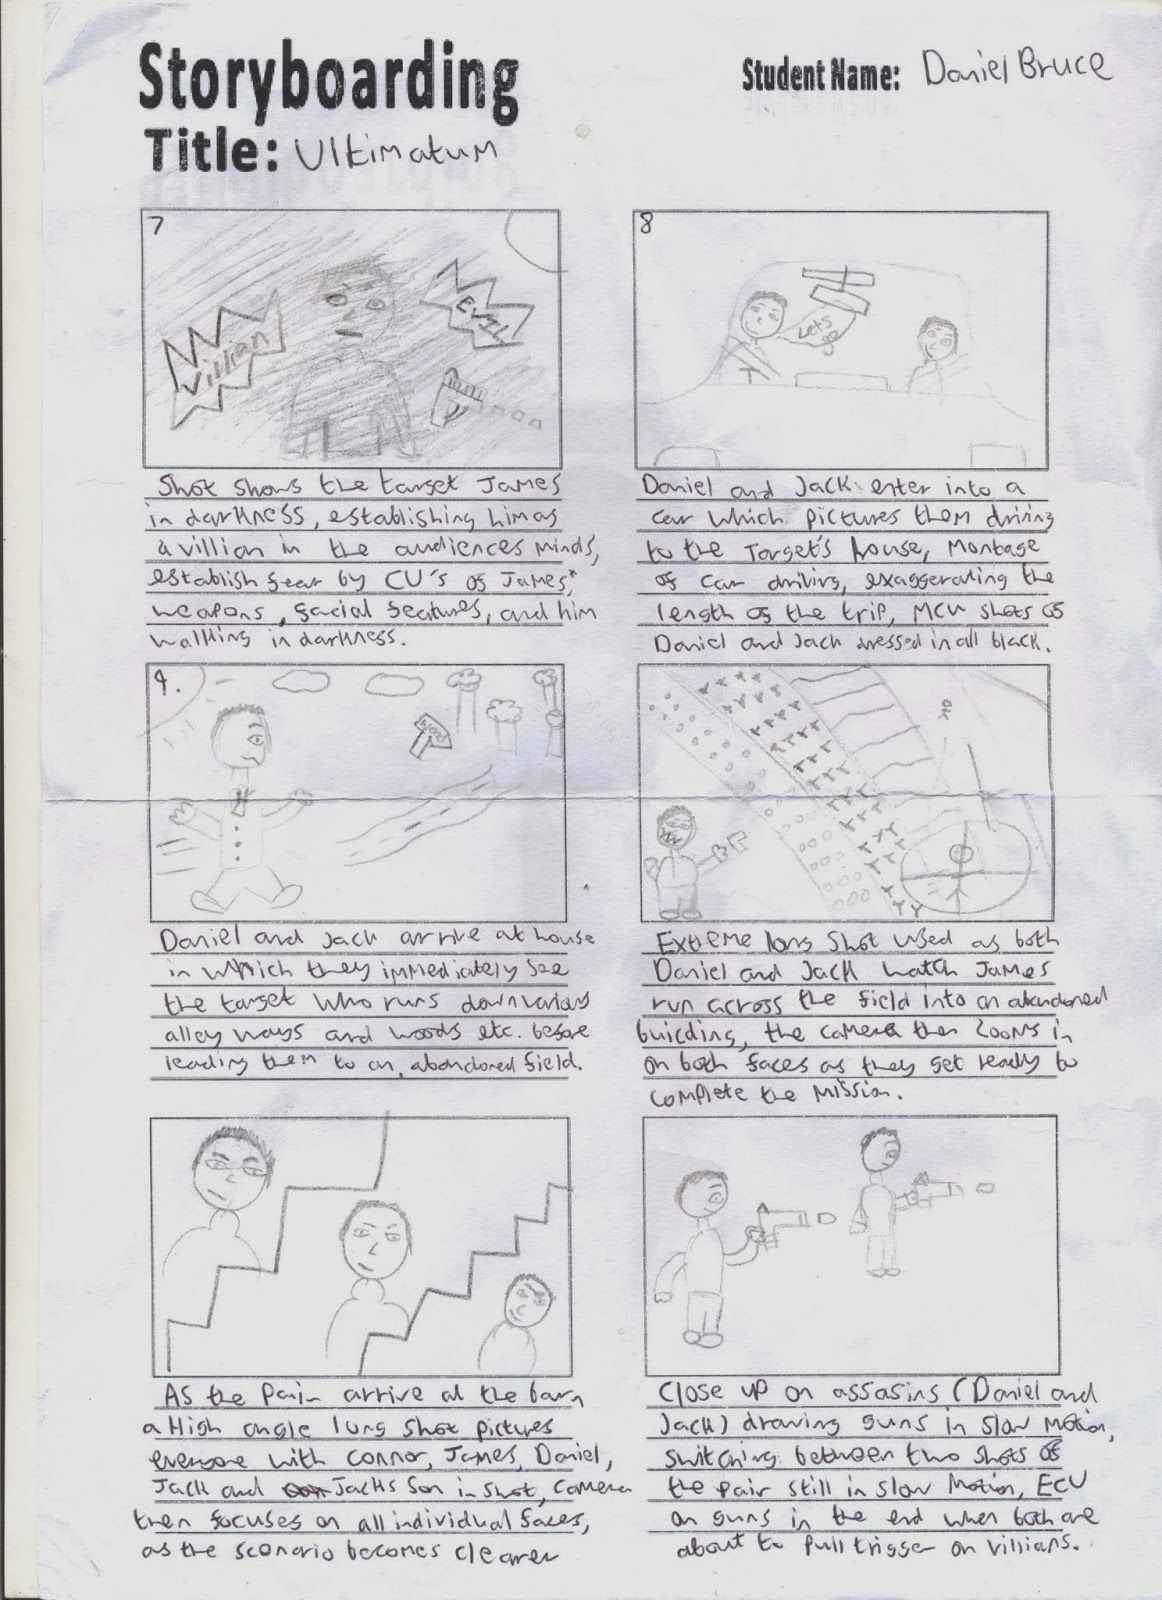 Storyboarding
Student Name: Daniel Bruce
Title: Ultimatum
7
Villian
Evil
Shot shows the target James
in darkness, establishing him as
a villian in the audiences minds,
establish fear by CU's of James'
weapons, facial features, and him
walking in darkness.
8
Lets go
Daniel and Jack enter into a
car which pictures them driving
to the Target's house, Montage
of car driving, exaggerating the
length of the trip, MCU shots of
Daniel and Jack dressed in all black.
9.
Daniel and Jack arrive at house
in which they immediately see
the target who runs down various
alley ways and woods etc. before
leading them to an abandoned field.
OK
Extreme long shot used as both
Daniel and Jack watch James
run across the field into an abandoned
building, the camera then zooms in
on both faces as they get ready to
complete the mission.
As the Pair arrive at the barn
a High angle long shot pictures
everyone with Connor, James, Daniel,
Jack and Jacks Son in shot, camera
then focuses on all individual faces,
as the scenario becomes clearer
Close up on assasins (Daniel and
Jack) drawing guns in slow motion,
switching between two shots of
the pair still in slow motion, ECU
on guns in the end when both are
about to pull trigger on villians.